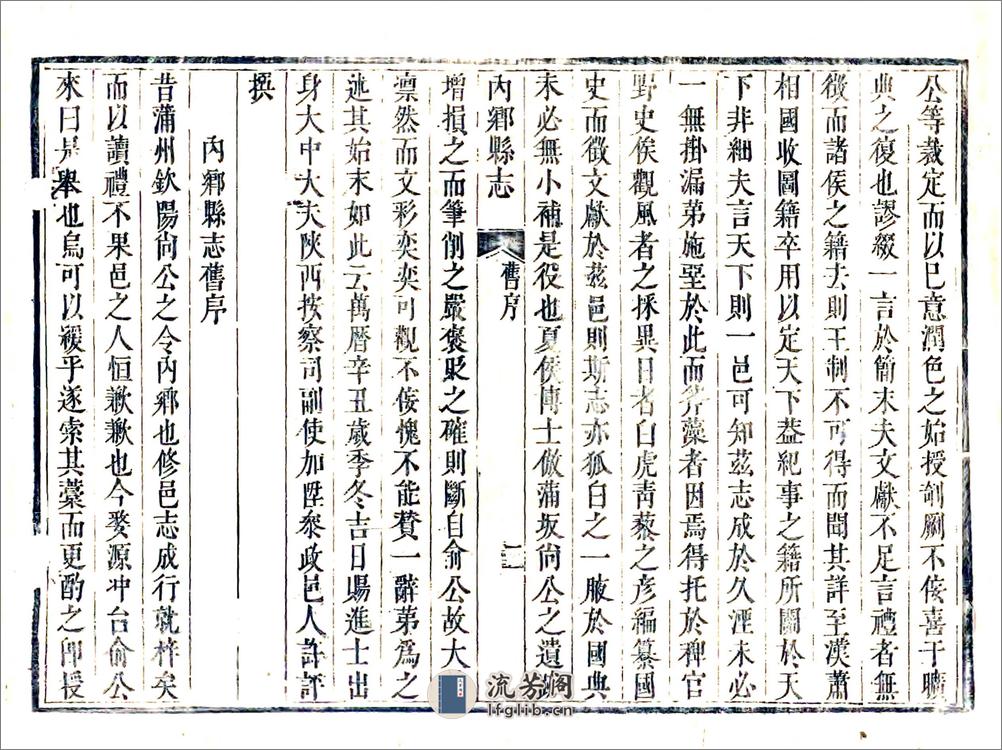 公等裁定而以己意潤色之始授剞劂不佞喜于曠
典之復也謬綴一言於簡末夫文獻不足言禮者無
徵而諸侯之籍去則王制不可得而聞其詳至漢蕭
相國收圖籍卒用以定天下葢紀事之籍所關於天
下非細夫言天下則一邑可知茲志成於久湮未必
一無掛漏第施堊於此而斧藻者因焉得托於稗官
野史俟觀風者之採異日者白虎靑藜之彥編纂國
史而徵文獻於茲邑則斯志亦狐白之一腋於國典
未必無小補是役也夏侯博士倣蒲坂尙公之遺
內鄉縣志
舊序
二
增損之而筆削之嚴褒貶之確則斷自俞公故大
凛然而文彩奕奕可觀不佞愧不能贊一辭第爲之
述其始末如此云萬曆辛丑歲季冬吉日賜進士出
身大中大夫陝西按察司副使加陞叅政邑人許評
撰
內鄉縣志舊序
昔蒲州欽陽尙公之令內鄉也修邑志成行就梓矣
而以讀禮不果邑之人恒歉歉也今婺源冲台俞公
來曰是舉也烏可以緩乎遂索其藁而更酌之卽授
流芳閣
lfglib.cn